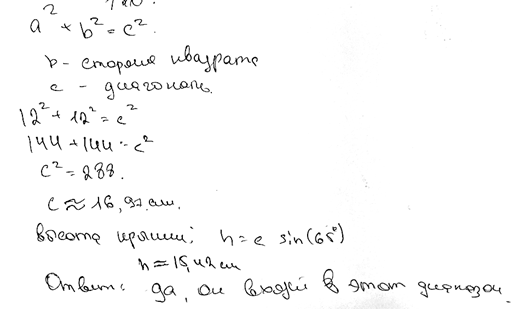 a² + b² = c².
b - сторона квадрата
c - диагональ.
12² + 12² = c²
144 + 144 = c²
c² = 288.
c ≈ 16,97 см.
Высота крыши: h = c sin(65°)
h ≈ 15,42 см
Ответ: да, он входит в этот диапазон.